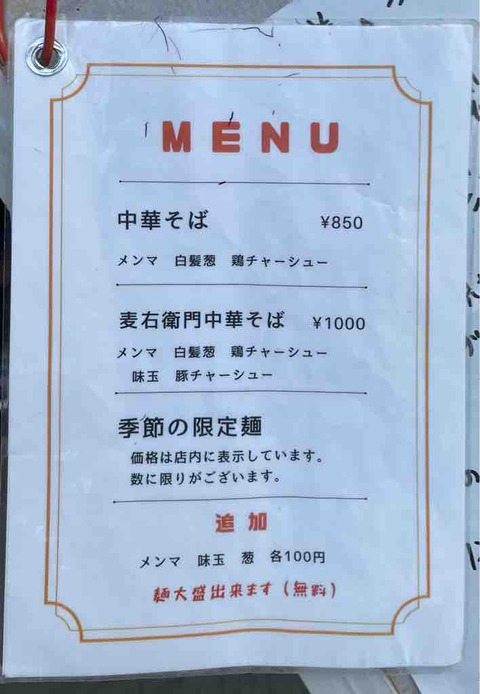 MENU
中華そば ¥850
メンマ 白髪葱 鶏チャーシュー
麦右衛門中華そば ¥1000
メンマ 白髪葱 鶏チャーシュー
味玉 豚チャーシュー
季節の限定麺
価格は店内に表示しています。
数に限りがございます。
追加
メンマ 味玉 葱 各100円
麺大盛出来ます(無料)